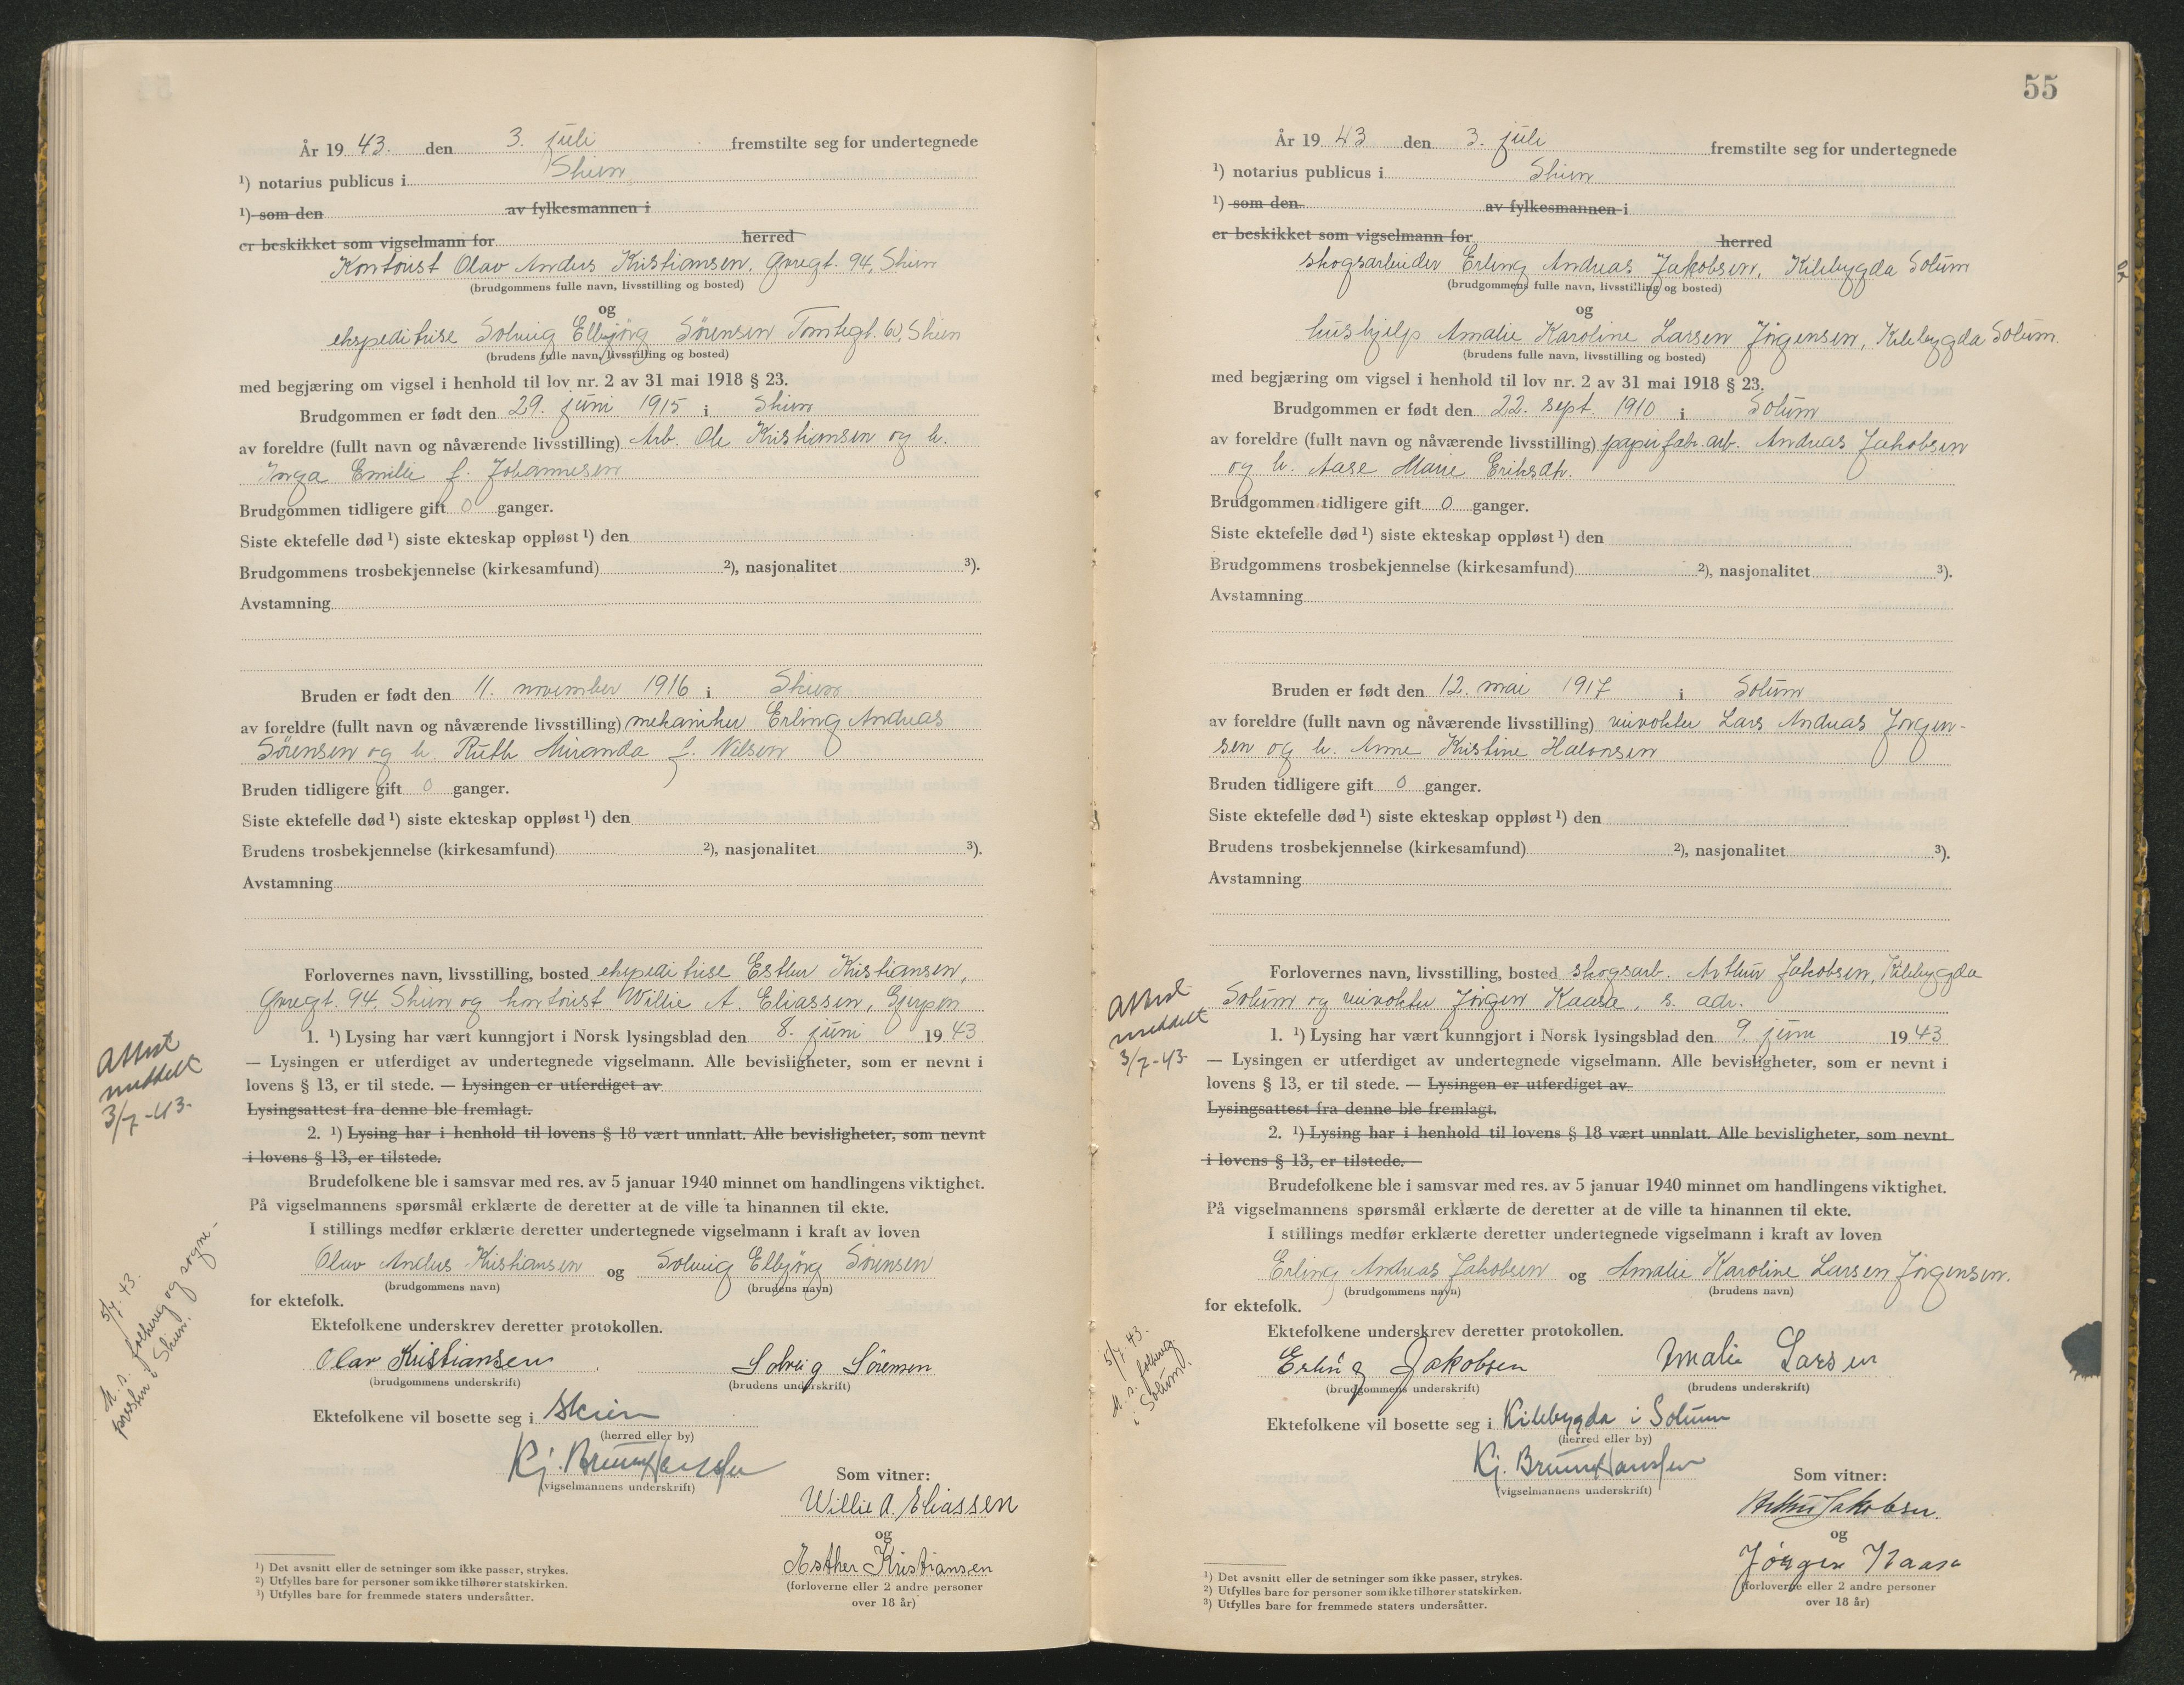 År 19 43. den 3. juli fremstilte seg for undertegnede
¹) notarius publicus i Skien
¹) som den av fylkesmannen i
er beskikket som vigselmann for herred
Kontorist Olav Anders Kristiansen, 94, Skien
(brudgommens fulle navn, livsstilling og bosted)
og
ekspeditrise Solveig Elbjörg Sørensen Tomtegt. 60, Skien
(brudens fulle navn, livsstilling og bosted)
med begjæring om vigsel i henhold til lov nr. 2 av 31 mai 1918 § 23.
Brudgommen er født den 29. juni 1915 i Skien
av foreldre (fullt navn og nåværende livsstilling) Arb. Ole Kristiansen og h.
Inga Emilie f. Johannesen
Brudgommen tidligere gift 0 ganger.
Siste ektefelle død ¹) siste ekteskap oppløst ¹) den
Brudgommens trosbekjennelse (kirkesamfund) ²), nasjonalitet ³).
Avstamning
Bruden er født den 11. november 1916 i Skien
av foreldre (fullt navn og nåværende livsstilling) mekaniker Erling Andreas
Sørensen og h. Ruth Miranda f. Nilsen
Bruden tidligere gift 0 ganger.
Siste ektefelle død ¹) siste ekteskap oppløst ¹) den
Brudens trosbekjennelse (kirkesamfund) ²), nasjonalitet ³).
Avstamning
Forlovernes navn, livsstilling, bosted ekspeditrise Esther Kristiansen,
94. Skien og kontorist Willie A. Eliassen, Gjerpen
1. ¹) Lysing har vært kunngjort i Norsk lysingsblad den 8. juni 19 43
— Lysingen er utferdiget av undertegnede vigselmann. Alle bevisligheter, som er nevnt i
lovens § 13, er til stede. — Lysingen er utferdiget av
Lysingsattest fra denne ble fremlagt.
2. ¹) Lysing har i henhold til lovens § 18 vært unnlatt. Alle bevisligheter, som nevnt
i lovens § 13, er tilstede.
Brudefolkene ble i samsvar med res. av 5 januar 1940 minnet om handlingens viktighet.
På vigselmannens spørsmål erklærte de deretter at de ville ta hinannen til ekte.
I stillings medfør erklærte deretter undertegnede vigselmann i kraft av loven
Olav Anders Kristiansen og Solveig Elbjörg Sørensen
(brudgommens navn) (brudens navn)
for ektefolk.
Ektefolkene underskrev deretter protokollen.
Olav Kristiansen Solveig Sörensen
(brudgommens underskrift) (brudens underskrift)
Ektefolkene vil bosette seg i Skien
(herred eller by)
Kj. Bruun Hanssen
(vigselmannens underskrift)
Som vitner:
Willie A. Eliassen
og
Esther Kristiansen
(forloverne eller 2 andre personer
over 18 år)
¹) Det avsnitt eller de setninger som ikke passer, strykes.
²) Utfylles bare for personer som ikke tilhører statskirken.
³) Utfylles bare for fremmede staters undersåtter.
Attest
meddelt
3/7-43.
5/7.43.
M. s. folkereg og sogne-
presten i Skien.
55
År 19 43 den 3. juli fremstilte seg for undertegnede
¹) notarius publicus i Skien
¹) som den av fylkesmannen i
er beskikket som vigselmann for herred
skogsarbeider Erling Andreas Jakobsen, Kilebygda Solum
(brudgommens fulle navn, livsstilling og bosted)
og
hushjelp Amalie Karoline Larsen Jörgensen, Kilebygda Solum.
(brudens fulle navn, livsstilling og bosted)
med begjæring om vigsel i henhold til lov nr. 2 av 31 mai 1918 § 23.
Brudgommen er født den 22. sept. 1910 i Solum
av foreldre (fullt navn og nåværende livsstilling) papirfabr.arb. Andreas Jakobsen
og h. Aase Marie Eriksdtr.
Brudgommen tidligere gift 0 ganger.
Siste ektefelle død ¹) siste ekteskap oppløst ¹) den
Brudgommens trosbekjennelse (kirkesamfund) ²), nasjonalitet ³).
Avstamning
Bruden er født den 12. mai 1917 i Solum
av foreldre (fullt navn og nåværende livsstilling) veivokter Lars Andreas Jörgen-
sen og h. Anne Kristine Halvorsen
Bruden tidligere gift 0 ganger.
Siste ektefelle død ¹) siste ekteskap oppløst ¹) den
Brudens trosbekjennelse (kirkesamfund) ²), nasjonalitet ³).
Avstamning
Forlovernes navn, livsstilling, bosted skogsarb. Arthur Jakobsen, Kilebygda
Solum og veivokter Jörgen Kaasa, s. adr.
1. ¹) Lysing har vært kunngjort i Norsk lysingsblad den 9. juni 19 43
— Lysingen er utferdiget av undertegnede vigselmann. Alle bevisligheter, som er nevnt i
lovens § 13, er til stede. — Lysingen er utferdiget av
Lysingsattest fra denne ble fremlagt.
2. ¹) Lysing har i henhold til lovens § 18 vært unnlatt. Alle bevisligheter, som nevnt
i lovens § 13, er tilstede. —
Brudefolkene ble i samsvar med res. av 5 januar 1940 minnet om handlingens viktighet.
På vigselmannens spørsmål erklærte de deretter at de ville ta hinannen til ekte.
I stillings medfør erklærte deretter undertegnede vigselmann i kraft av loven
Erling Andreas Jakobsen og Amalie Karoline Larsen Jörgensen.
(brudgommens navn) (brudens navn)
for ektefolk.
Ektefolkene underskrev deretter protokollen.
Erling Jakobsen Amalie Larsen
(brudgommens underskrift) (brudens underskrift)
Ektefolkene vil bosette seg i Kilebygda i Solum
(herred eller by)
Kj. Bruun Hanssen
(vigselmannens underskrift)
Som vitner:
Arthur Jakobsen.
og
Jörgen Kaasa
(forloverne eller 2 andre personer
over 18 år)
¹) Det avsnitt eller de setninger som ikke passer, strykes.
²) Utfylles bare for personer som ikke tilhører statskirken.
³) Utfylles bare for fremmede staters undersåtter.
Attest
meddelt
3/7-43.
5/7.43.
M. s. folkereg.
i Solum.